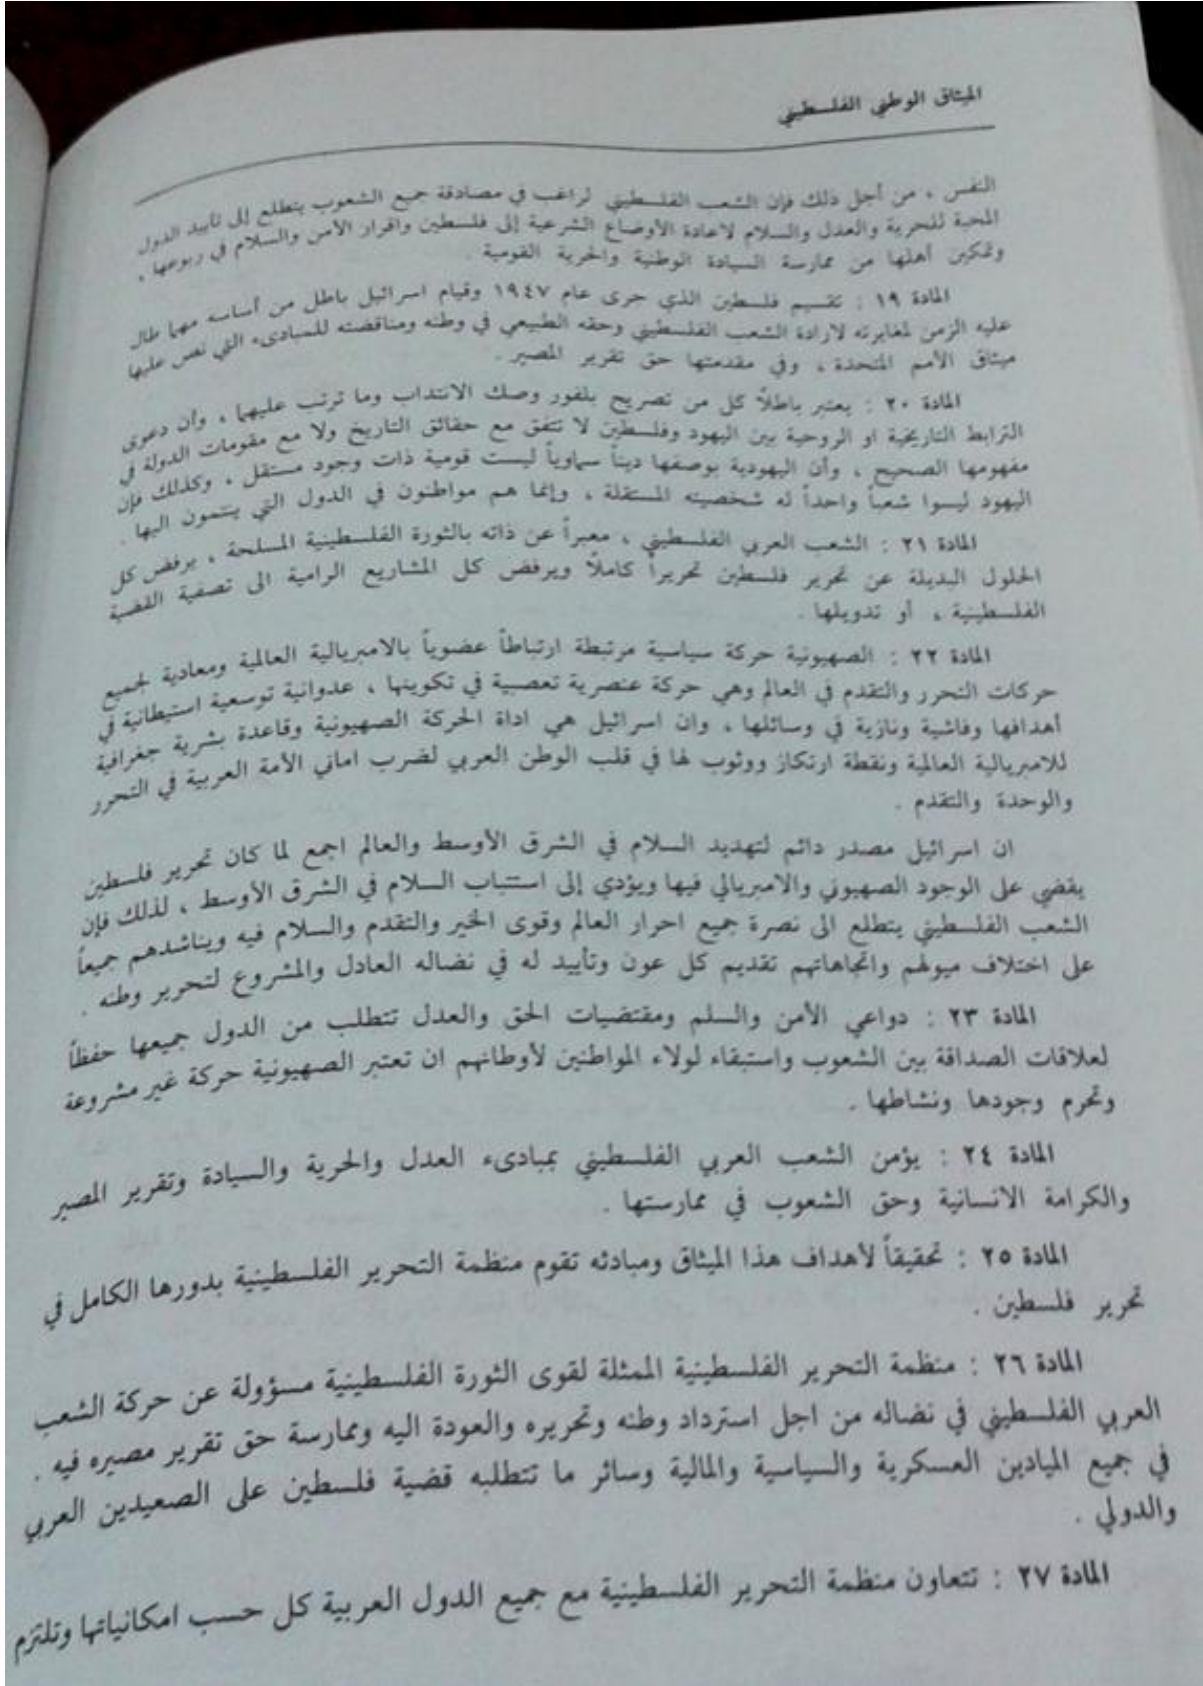 الميثاق الوطني الفلسطيني
النفس ، من أجل ذلك فإن الشعب الفلسطيني لراغب في مصادقة جميع الشعوب يتطلع إلى تأييد الدول
المحبة للحرية والعدل والسلام لاعادة الأوضاع الشرعية إلى فلسطين واقرار الأمن والسلام في ربوعها ،
وتمكين أهلها من ممارسة السيادة الوطنية والحرية القومية .
المادة ١٩ : تقسيم فلسطين الذي جرى عام ١٩٤٧ وقيام اسرائيل باطل من أساسه مهما طال
عليه الزمن لمغايرته لارادة الشعب الفلسطيني وحقه الطبيعي في وطنه ومناقضته للمبادىء التي نص عليها
ميثاق الأمم المتحدة ، وفي مقدمتها حق تقرير المصير .
المادة ٢٠ : يعتبر باطلاً كل من تصريح بلفور وصك الانتداب وما ترتب عليهما ، وأن دعوى
الترابط التاريخية او الروحية بين اليهود وفلسطين لا تتفق مع حقائق التاريخ ولا مع مقومات الدولة في
مفهومها الصحيح ، وأن اليهودية بوصفها ديناً سماوياً ليست قومية ذات وجود مستقل ، وكذلك فإن
اليهود ليسوا شعباً واحداً له شخصيته المستقلة ، وإنما هم مواطنون في الدول التي ينتمون اليها .
المادة ٢١ : الشعب العربي الفلسطيني ، معبراً عن ذاته بالثورة الفلسطينية المسلحة ، يرفض كل
الحلول البديلة عن تحرير فلسطين تحريراً كاملاً ويرفض كل المشاريع الرامية الى تصفية القضية
الفلسطينية ، أو تدويلها .
المادة ٢٢ : الصهيونية حركة سياسية مرتبطة ارتباطاً عضوياً بالامبريالية العالمية ومعادية لجميع
حركات التحرر والتقدم في العالم وهي حركة عنصرية تعصبية في تكوينها ، عدوانية توسعية استيطانية في
أهدافها وفاشية ونازية في وسائلها ، وان اسرائيل هي اداة الحركة الصهيونية وقاعدة بشرية جغرافية
للامبريالية العالمية ونقطة ارتكاز ووثوب لها في قلب الوطن العربي لضرب اماني الأمة العربية في التحرر
والوحدة والتقدم .
ان اسرائيل مصدر دائم لتهديد السلام في الشرق الأوسط والعالم اجمع لما كان تحرير فلسطين
يقضي على الوجود الصهيوني والامبريالي فيها ويؤدي إلى استتباب السلام في الشرق الأوسط ، لذلك فإن
الشعب الفلسطيني يتطلع الى نصرة جميع احرار العالم وقوى الخير والتقدم والسلام فيه ويناشدهم جميعاً
على اختلاف ميولهم واتجاهاتهم تقديم كل عون وتأييد له في نضاله العادل والمشروع لتحرير وطنه .
المادة ٢٣ : دواعي الأمن والسلم ومقتضيات الحق والعدل تتطلب من الدول جميعها حفظاً
لعلاقات الصداقة بين الشعوب واستبقاء لولاء المواطنين لأوطانهم ان تعتبر الصهيونية حركة غير مشروعة
وتحرم وجودها ونشاطها .
المادة ٢٤ : يؤمن الشعب العربي الفلسطيني بمبادىء العدل والحرية والسيادة وتقرير المصير
والكرامة الانسانية وحق الشعوب في ممارستها .
المادة ٢٥ : تحقيقاً لأهداف هذا الميثاق ومبادئه تقوم منظمة التحرير الفلسطينية بدورها الكامل في
تحرير فلسطين .
المادة ٢٦ : منظمة التحرير الفلسطينية الممثلة لقوى الثورة الفلسطينية مسؤولة عن حركة الشعب
العربي الفلسطيني في نضاله من اجل استرداد وطنه وتحريره والعودة اليه وممارسة حق تقرير مصيره فيه .
في جميع الميادين العسكرية والسياسية والمالية وسائر ما تتطلبه قضية فلسطين على الصعيدين العربي
والدولي .
المادة ٢٧ : تتعاون منظمة التحرير الفلسطينية مع جميع الدول العربية كل حسب امكانياتها وتلتزم